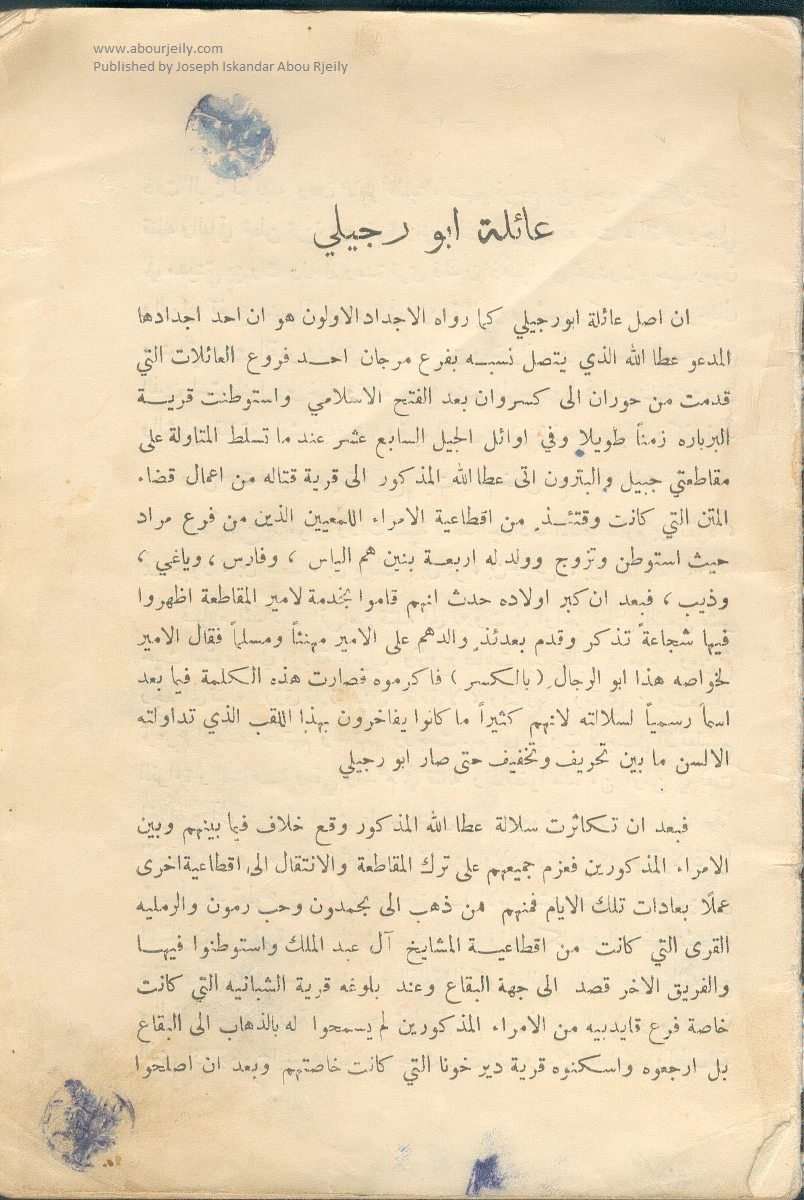 www.abourjeily.com
Published by Joseph Iskandar Abou Rjeily
عائلة ابو رجيلي
ان اصل عائلة ابورجيلي كما رواه الاجداد الاولون هو ان احد اجدادها
المدعو عطا الله الذي يتصل نسبه بفرع مرجان احد فروع العائلات التي
قدمت من حوران الى كسروان بعد الفتح الاسلامي واستوطنت قرية
البرباره زمناً طويلا وفي اوائل الجيل السابع عشر عند ما تسلط المتاولة على
مقاطعتي جبيل والبترون اتى عطا الله المذكور الى قرية قتاله من اعمال قضاء
المتن التي كانت وقتئذٍ من اقطاعية الامراء اللمعيين الذين من فرع مراد
حيث استوطن وتزوج وولد له اربعة بنين هم الياس ، وفارس ، وياغي ،
وذيب ، فبعد ان كبر اولاده حدث انهم قاموا بخدمة لامير المقاطعة اظهروا
فيها شجاعةً تذكر وقدم بعدئذٍ والدهم على الامير مهنئاً ومسلماً فقال الامير
لخواصه هذا ابو الرجالِ (بالكسر) فاكرموه فصارت هذه الكلمة فيما بعد
اسماً رسمياً لسلالته لانهم كثيراً ما كانوا يفاخرون بهذا اللقب الذي تداولته
الالسن ما بين تحريف وتخفيف حتى صار ابو رجيلي
فبعد ان تكاثرت سلالة عطا الله المذكور وقع خلاف فيما بينهم وبين
الامراء المذكورين فعزم جميعهم على ترك المقاطعة والانتقال الى اقطاعية اخرى
عملًا بعادات تلك الايام فمنهم من ذهب الى بحمدون وحب رمون والرمليه
القرى التي كانت من اقطاعية المشايخ آل عبد الملك واستوطنوا فيها
والفريق الاخر قصد الى جهة البقاع وعند بلوغه قرية الشبانيه التي كانت
خاصة فرع قايدبيه من الامراء المذكورين لم يسمحوا له بالذهاب الى البقاع
بل ارجعوه واسكنوه قرية دير خونا التي كانت خاصتهم وبعد ان اصلحوا